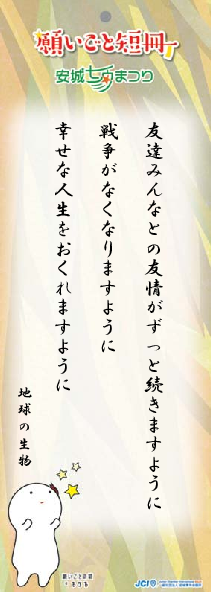 願いごと短冊
安城七夕まつり
友達みんなとの友情がずっと続きますように
戦争がなくなりますように
幸せな人生をおくれますように
地球の生物
願いごと短冊
JCI